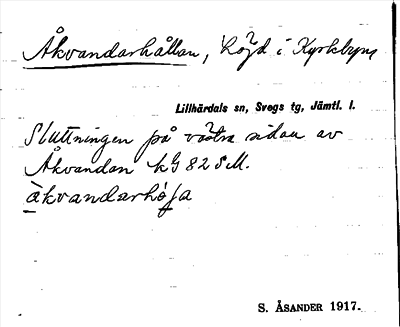 Åkvandarhållan, höjd i Kyrkbyn,
Lillhärdals sn, Svegs tg, Jämtl. l.
Sluttningen på västra sidan av
Åkvandan kG 82 SM.
åkvandarhöja
S. ÅSANDER 1917.